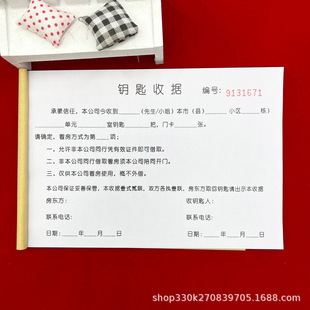 钥匙收据 编号: 9131671
承蒙信任，本公司今收到______(先生/小姐)本市（县）______小区____栋
______单元______室钥匙____把，门卡____张。
请确定，看房方式为第____项；
一、允许非本公司同行凭有效证件即可借取。
二、非本公司同行借取看房须本公司陪同开门。
三、仅供本公司看房使用，概不外借。
本公司保证妥善保管，本收据壹式贰联，双方各执壹联，房东方取回钥匙请出示本收据
房东方： 收钥匙人：
联系电话： 联系电话：
日期：____年____月____日 日期：____年____月____日
shop330k270839705.1688.com